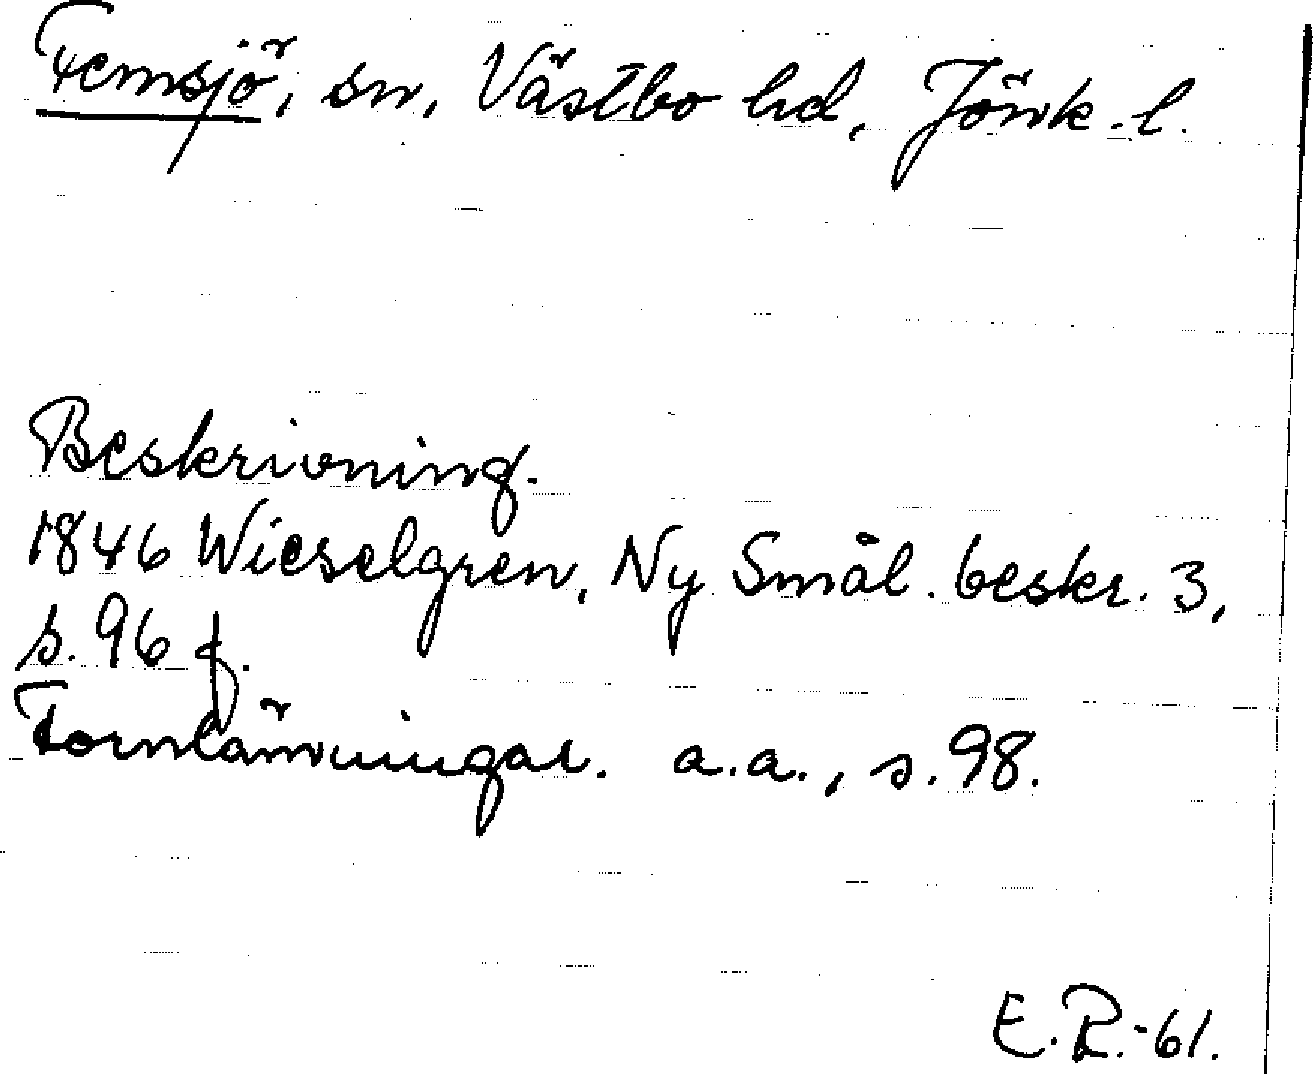 Femsjö, sn, Västbo hd, Jönk. l.
Beskrivning.
1846 Wieselgren, Ny Smål. beskr. 3,
s. 96 f.
Fornlämningar. a.a., s. 98.
E.R.-61.